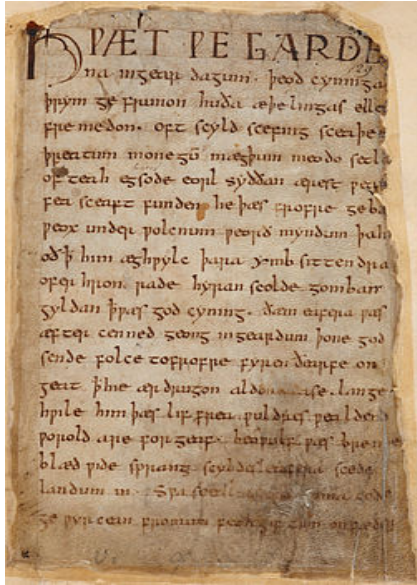 HǷÆT ǷE GARDE
na ingear dagum. þeod cyninga
þrym ge frunon huða æþelingas elle
fre medon. oft scyld scefing sceaþe
þreatum monegū mægþum meodo setla
of teah egsode eorl syððan ærest
fea sceaft funden he þæs frofre geba
ƿeox under ƿolcnum ƿeorð myndum þah
oð ꝥ him æghƿylc þara ymb sittendra
ofer hron rade hyran scolde gomban
gyldan ꝥ ƿæs god cyning. ðæm eafera ƿæs
æfter cenned geong ingeardum þone god
sende folce tofrofre fyren ðearfe on
geat ꝥ hie ær drugon aldor ase. lange
hƿile him þæs lif frea ƿuldres ƿealdend
ƿorold are for geaf. beoƿulf ƿæs breme
blæd ƿide sprang scyldes eafera scede
landum in. Sƿa
ge ƿyrcean fromum feoh giftum on fæder